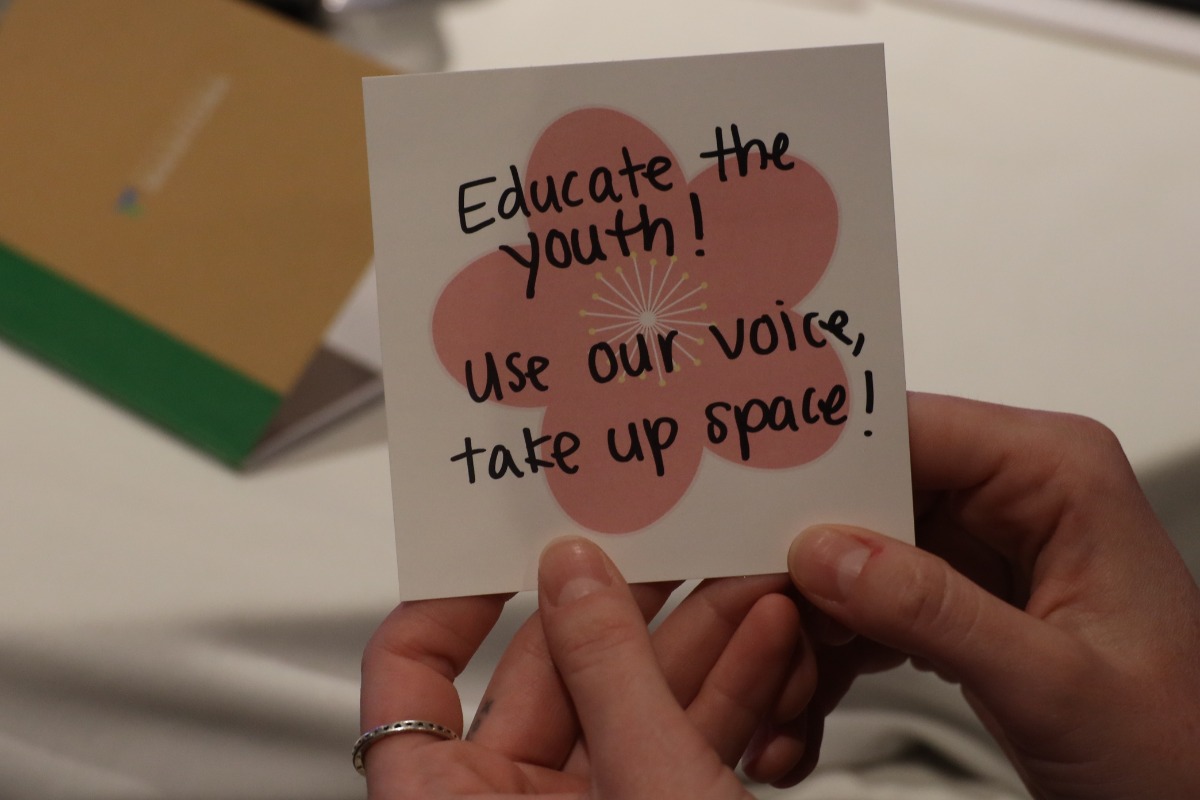 Educate the
youth!
use our voice,
take up space!